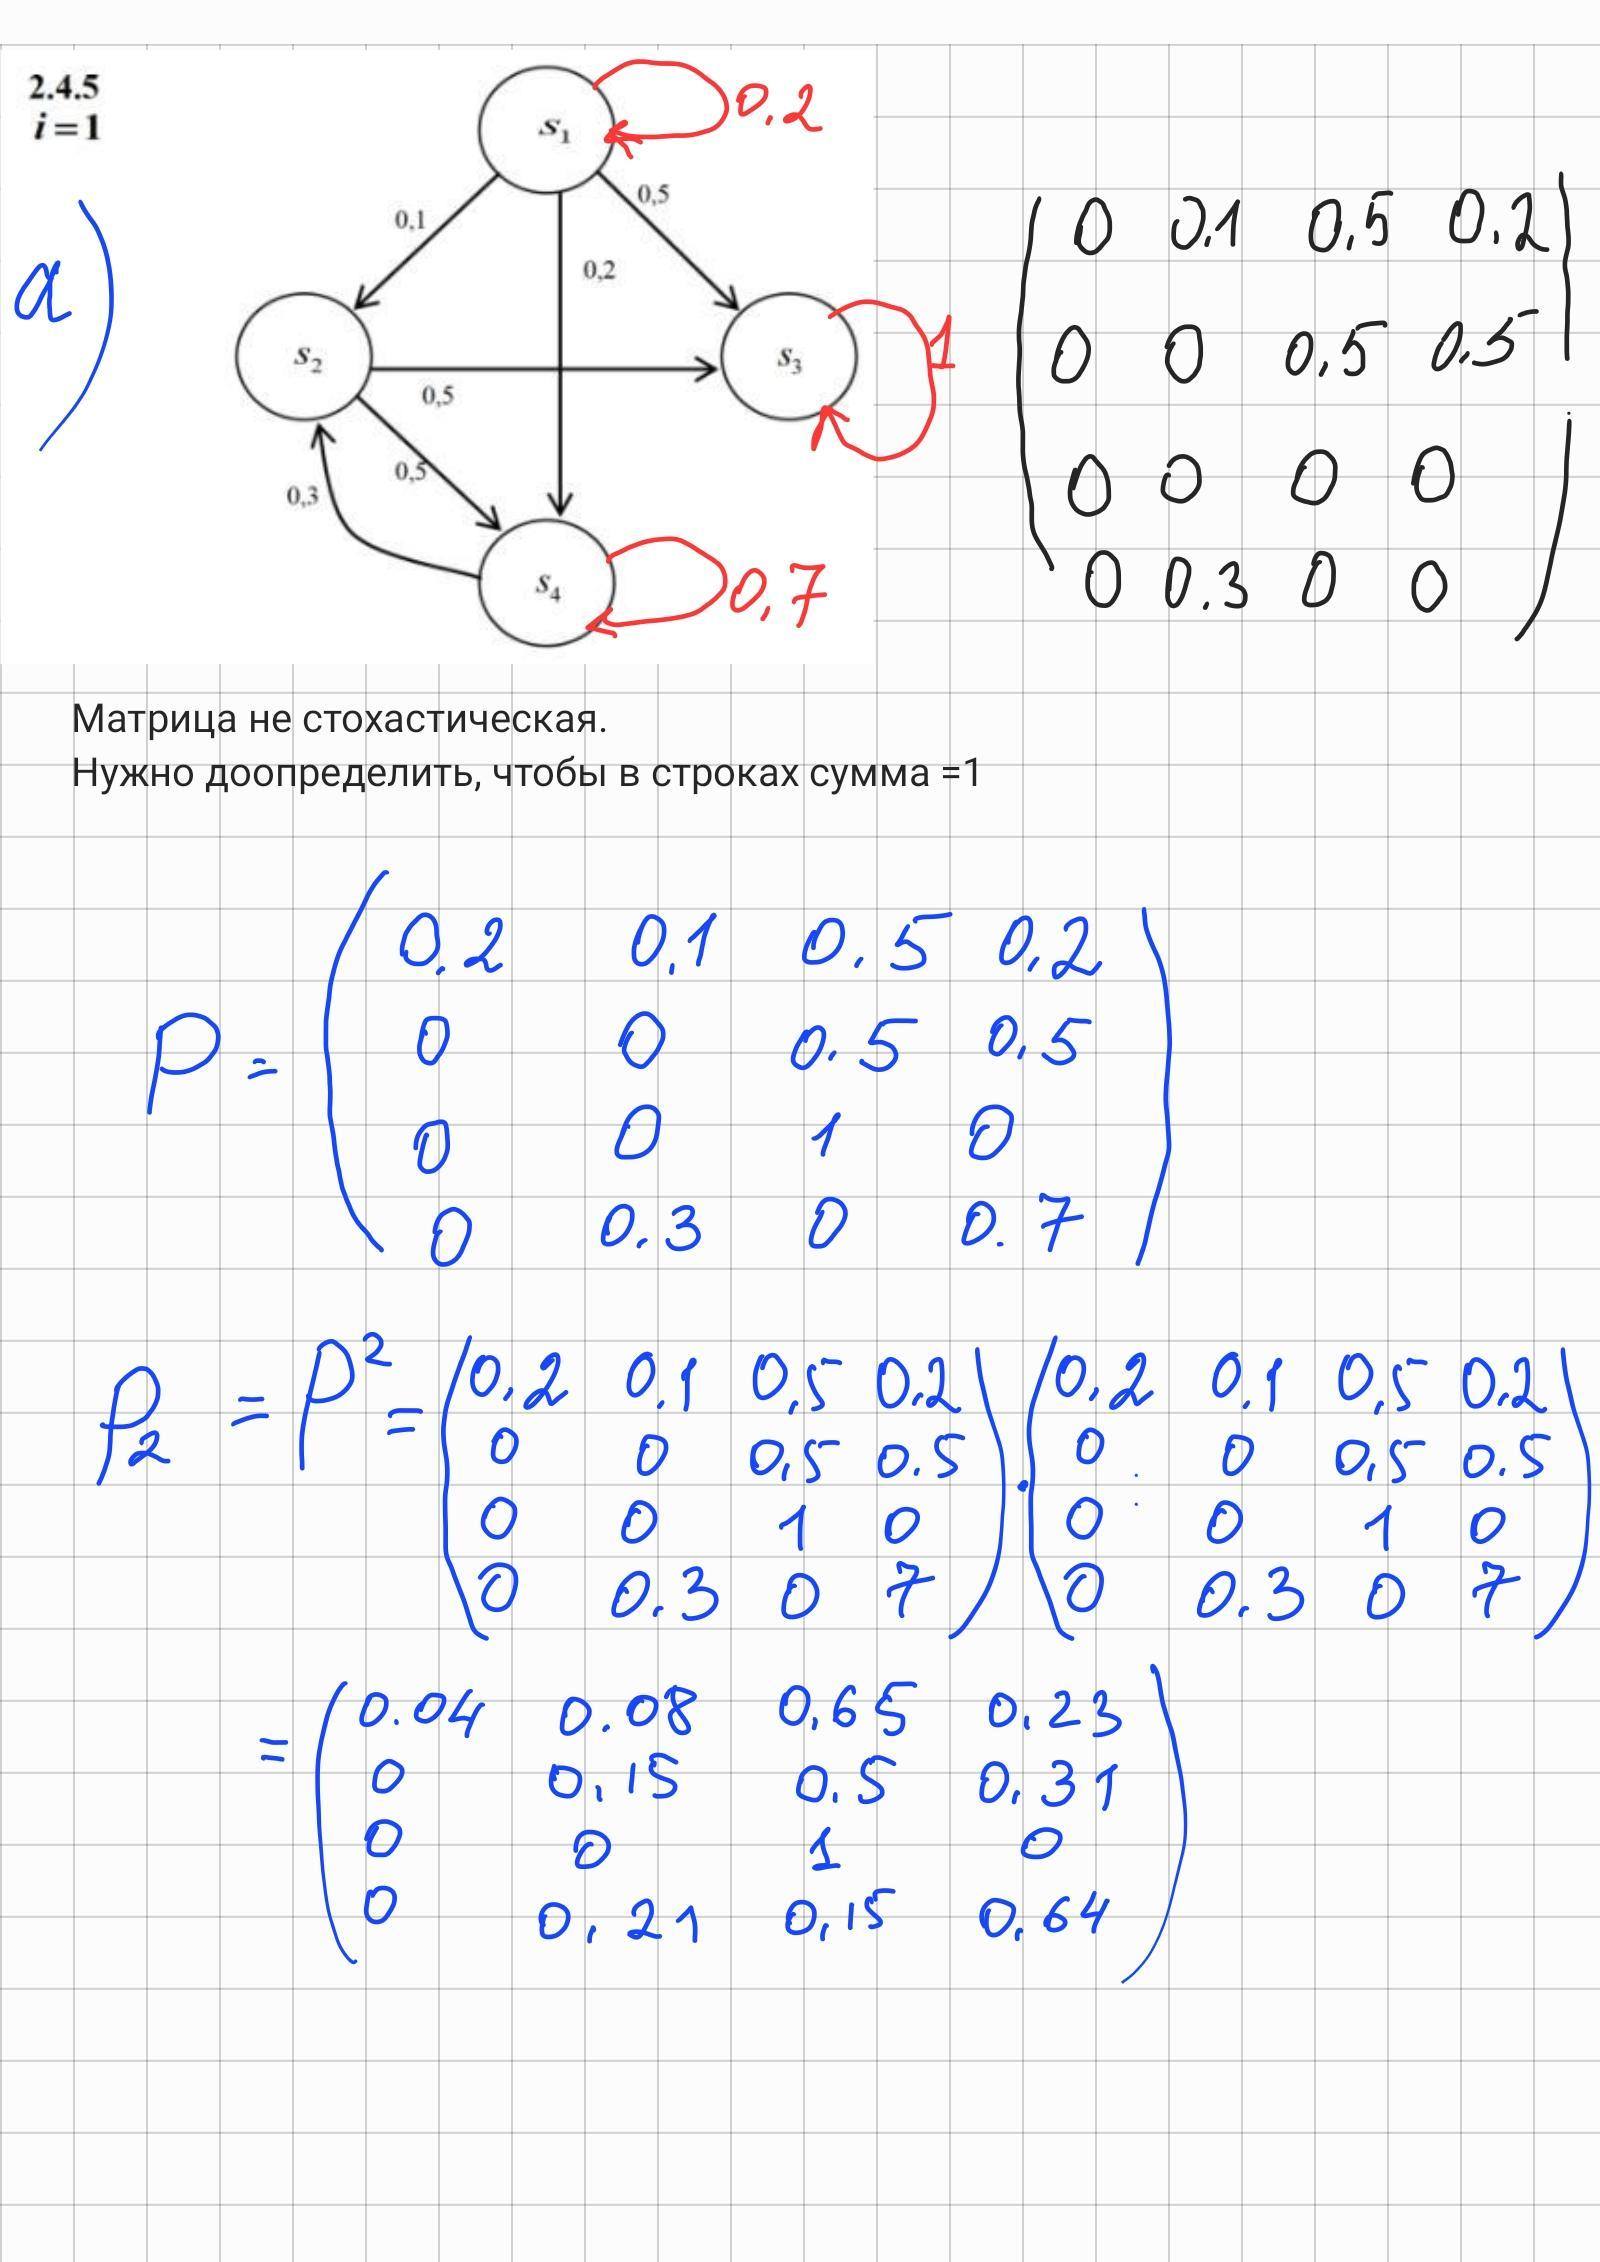 2.4.5
i = 1
a)
s1
0.2
0,1
0,5
0,2
s2
s3
1
0,5
0,5
0,3
s4
0,7
0 0.1 0,5 0.2
0 0 0,5 0.5
0 0 0 0
0 0.3 0 0
Матрица не стохастическая.
Нужно доопределить, чтобы в строках сумма =1
P = ( 0.2 0,1 0.5 0,2
0 0 0.5 0,5
0 0 1 0
0 0.3 0 0.7 )
P2 = P² = ( 0,2 0,1 0,5 0.2 ) · ( 0,2 0,1 0,5 0.2 )
0 0 0,5 0.5 0 0 0,5 0.5
0 0 1 0 0 0 1 0
0 0.3 0 7 0 0.3 0 7
= ( 0.04 0.08 0,65 0,23
0 0,15 0.5 0,31
0 0 1 0
0 0,21 0,15 0,64 )